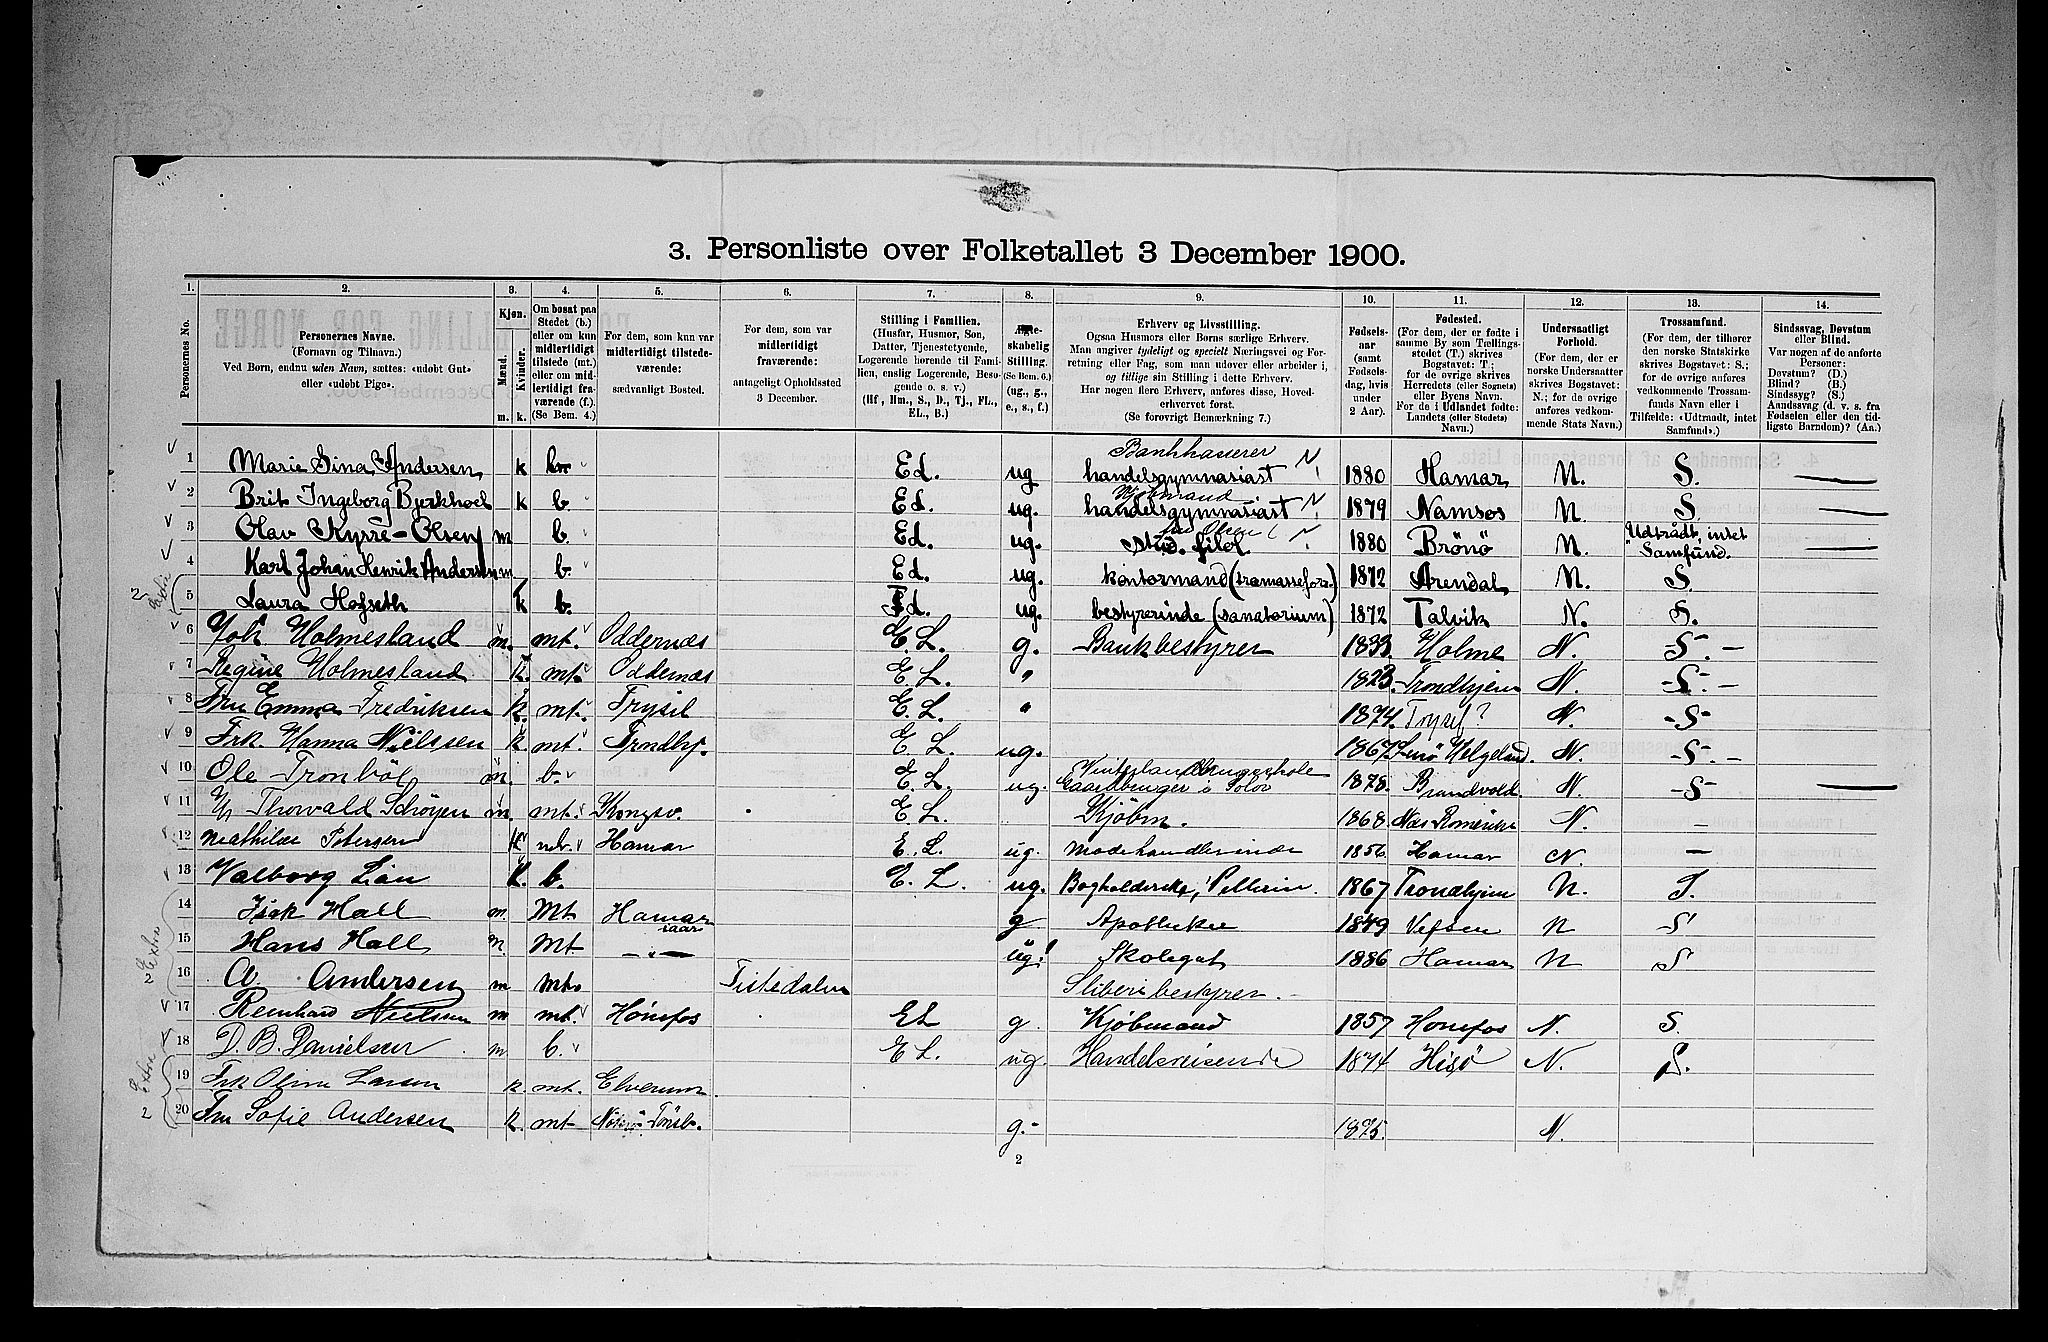 3. Personliste over Folketallet 3 December 1900.
1. 2. 3. 4. 5. 6. 7. 8. 9. 10. 11. 12. 13. 14.
Personernes No.
Personernes Navne.
(Fornavn og Tilnavn.)
Ved Børn, endnu uden Navn, sættes: «udøbt Gut»
eller «udøbt Pige».
Kjøn.
Mænd.
Kvinder.
m. k.
Om bosat paa
Stedet (b.)
eller om kun
midlertidigt
tilstede (mt.)
eller om mid-
lertidigt fra-
værende (f.).
(Se Bem. 4.)
For dem, som kun var
midlertidigt tilstede-
værende:
sædvanligt Bosted.
For dem, som var
midlertidigt
fraværende:
antageligt Opholdssted
3 December.
Stilling i Familien.
(Husfar, Husmor, Søn,
Datter, Tjenestetyende,
Logerende hørende til Fami-
lien, enslig Logerende, Besø-
gende o. s. v.)
(Hf, Hm., S., D., Tj., FL.,
EL., B.)
skabelig
Stilling.
(Se Bem. 6.)
(ug., g.,
e., s., f.)
Erhverv og Livsstilling.
Ogsaa Husmors eller Børns særlige Erhverv.
Man angiver tydeligt og specielt Næringsvei og For-
retning eller Fag, som man udøver eller arbeider i,
og tillige sin Stilling i dette Erhverv.
Har nogen flere Erhverv, anføres disse, Hoved-
erhvervet først.
(Se forøvrigt Bemerkning 7.)
Fødsels-
aar
(samt
Fødsels-
dag, hvis
under
2 Aar).
Fødested.
(For dem, der er fødte i
samme By som Tællings-
stedet (T.) skrives
Bogstavet: T.;
for de øvrige skrives
Herredets (eller Sognets)
eller Byens Navn.
For de i Udlandet fødte:
Landets (eller Stedets)
Navn.)
Undersaatligt
Forhold.
(For dem, der er
norske Undersaatter
skrives Bogstavet:
N.; for de øvrige
anføres vedkom-
mende Stats Navn.)
Trossamfund.
(For dem, der tilhører
den norske Statskirke
skrives Bogstavet: S.;
for de øvrige anføres
vedkommende Trossam-
funds Navn eller i
Tilfælde: «Udtraadt, intet
Samfund».)
Sindssvag, Døvstum
eller Blind.
Var nogen af de anførte
Personer:
Døvstum? (D.)
Blind? (B.)
Sindssyg? (S.)
Aandssvag (d. v. s. fra
Fødselen eller den tid-
ligste Barndom)? (Aa.)
1 Marie Sina Andersen k Ed. ug handelsgymnasiast 1880 Hamar N. S. —
2 Brit Ingeborg k b Ed. ug. handelsgymnasiast 1879 Namsos N. S. —
3 Olav Kyrre-Olsen m b. Ed. ug. stud. filol 1880 Brönö N. Udtrådt, intet Samfund. —
4 Karl Johan Henrik Andersen m. b. Ed. ug. kontormand 1872 Arendal N. S.
5 Laura Hofseth k b. ug. bestyrerinde (sanatorium) 1872 Talvik N. S.
6 Joh Holmesland m. mt. Oddernæs E. L. g. Bankbestyrer 1833. Holme N. S. —
7 Regine Holmesland k. mt. Oddernæs E. L. " 1823. Trondhjem N. S. —
8 Fru Emma Fredriksen k. mt. Trysil E. L. " 1874. Trysil? N. S
9 Frk. Hanna Nilssen k mt. Trondhj. E L. ug. 1867 Helgeland. N. S. —
10 Ole Tronböl m. b. E. L. ug. Gaardbruger i Solør 1878. Brandvold. N. S —
11 Thorvald Schöyen m. mt. Kongsv. E L. Kjøbm. 1868 Næs Romerike N. —
12 Mathilde Petersen k Hamar E. L. ug. Modehandlerinde 1856. Hamar N. —
13 Valborg Lian k. b. E. L. ug. Bogholderske, 1867 Trondhjem N. S.
14 Isak Hall m. Mt Hamar g Apotheker 1849 Vefsen N S
15 Hans Hall m. Mt — " — ug! Skolegut 1886 Hamar N S
16 A. Andersen m mt. Tistedalen Sliberibestyrer.
17 Reinhard Nielssen m mt. Hønefos EL g. Kjöbmand 1857 Honefos N. S.
18 D. B. Danielsen m. b. E L. ug. Handelsreisende 1874 Hisö N. S.
19 Frk Oline Larsen k. mt. Elverum.
20 Fru Sofie Andersen k. mt Tönsb. g. - 1875. N.
2